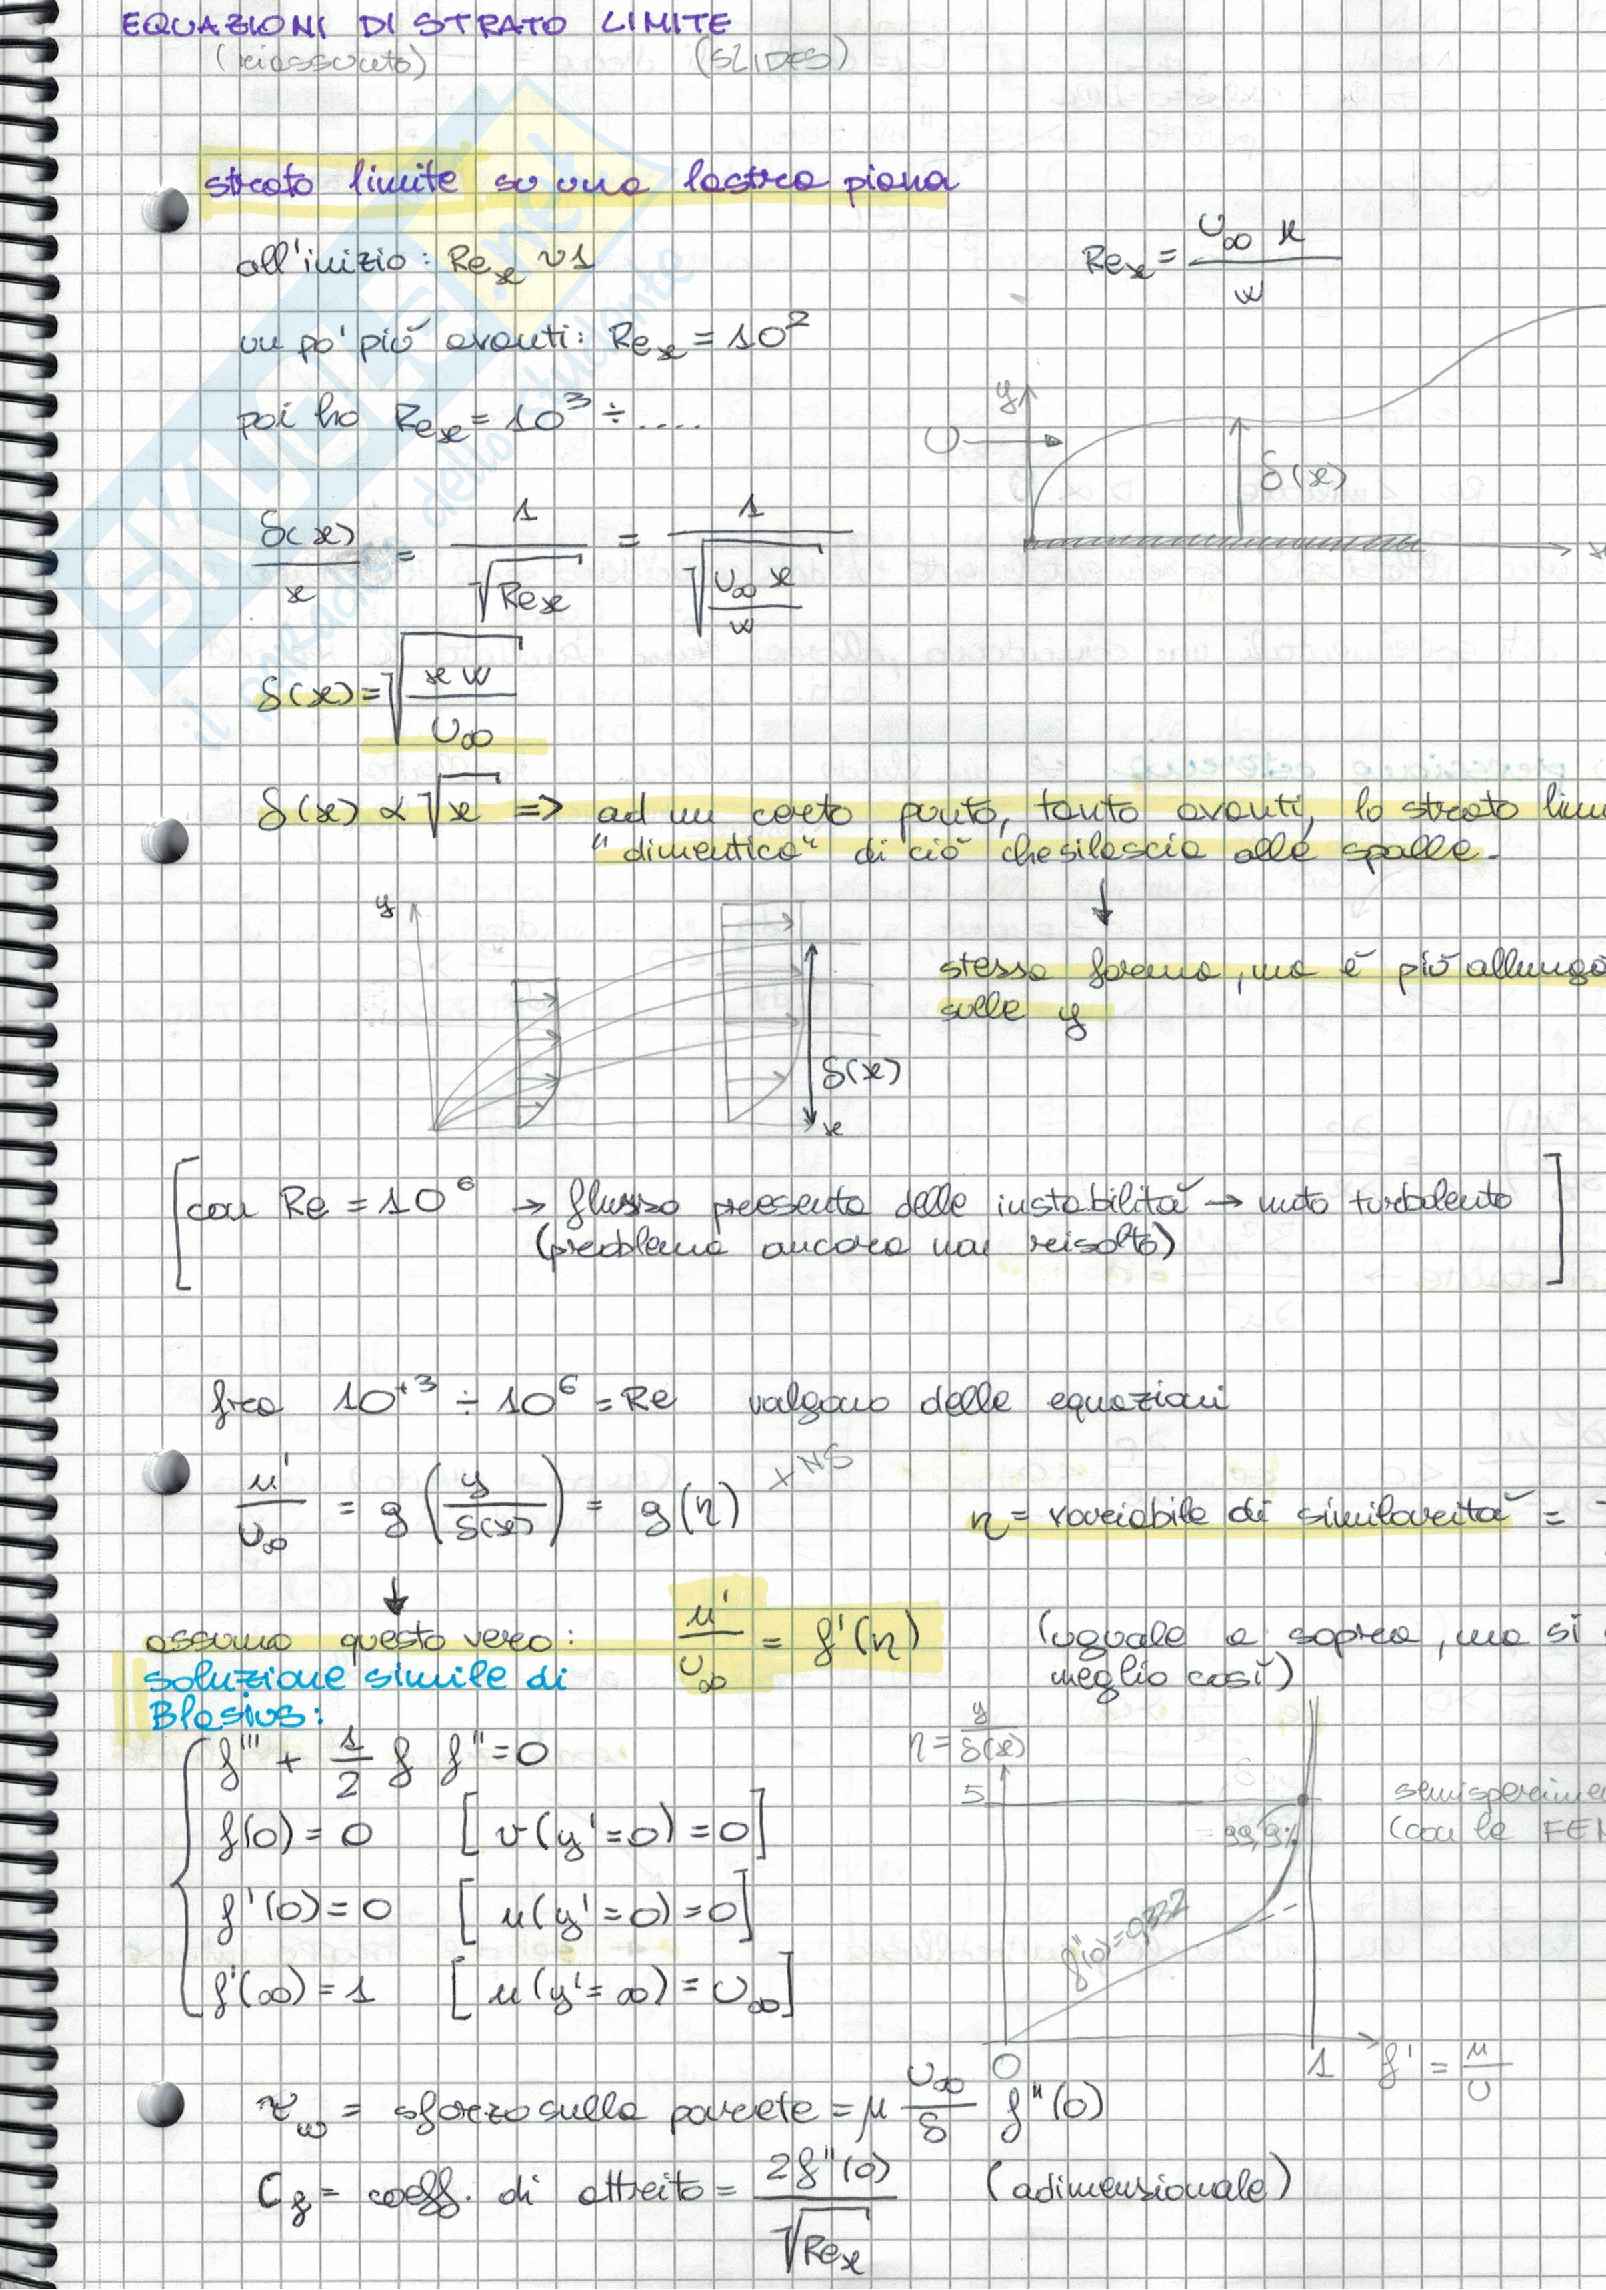 EQUAZIONI DI STRATO LIMITE
(riassunto) (SLIDES)
strato limite su una lastra piana
all'inizio: Re_x ~ 1
Re_x = U_∞ x / ν
un po' più avanti: Re_x = 10^2
poi ho Re_x = 10^3 ÷ ....
y
U
δ(x)
x
δ(x)/x = 1/√Re_x = 1/√(U_∞ x/ν)
δ(x) = √(x ν/U_∞)
δ(x) ∝ √x => ad un certo punto, tanto avanti, lo strato lim
"dimentica" di ciò che si lascia alle spalle.
↓
y
stessa forma, ma è più allunga
sulle y
δ(x)
x
[con Re = 10^6 → flusso presenta delle instabilità → moto turbolento
(problema ancora non risolto)]
fra 10^{+3} ÷ 10^6 = Re valgono delle equazioni
u'/U_∞ = g(y/δ(x)) = g(η) + NS
η = variabile di similarità =
↓
assumo questo vero: u'/U_∞ = f'(η) (uguale a sopra, ma si
meglio così)
soluzione simile di
Blasius:
f''' + 1/2 f f'' = 0
f(0) = 0 [v(y'=0) = 0]
f'(0) = 0 [u(y'=0) = 0]
f'(∞) = 1 [u(y'=∞) = U_∞]
η = y/δ(x)
5
99,9%
semisperime
(con le FE
f''(0) = 0,332
0 1 f' = u/U
τ_w = sforzo sulla parete = μ U_∞/δ f''(0)
C_f = coeff. di attrito = 2f''(0)/√Re_x (adimensionale)
SKUOLA.net
il paradiso dello studente